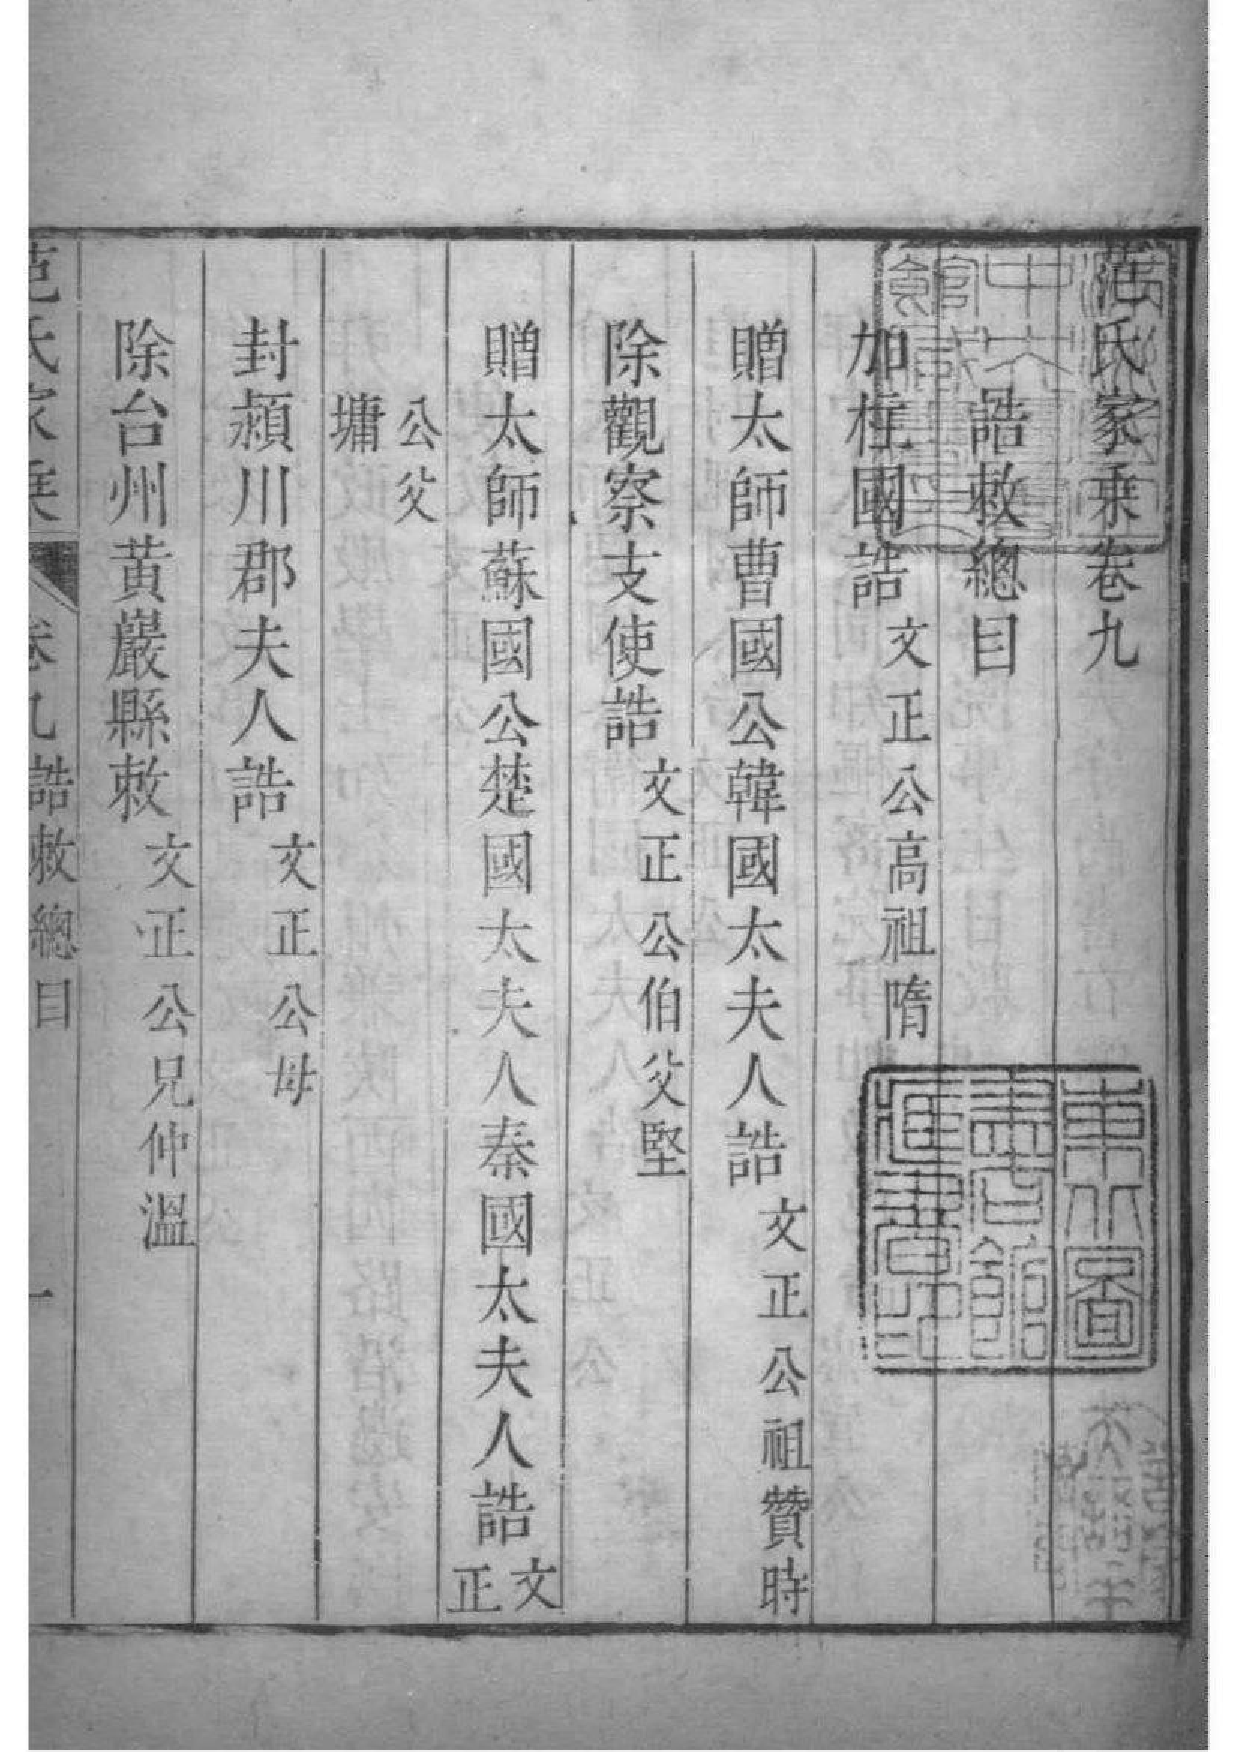 范氏家乘卷九
誥敕總目
加柱國誥 文正公高祖隋
贈太師曹國公韓國太夫人誥 文正公祖贊時
除觀察支使誥 文正公伯父堅
贈太師蘇國公楚國太夫人秦國太夫人誥 文正
公父墉
封潁川郡夫人誥 文正公母
除台州黄巖縣敕 文正公兄仲溫
范氏家乘 卷九誥敕總目 一
東北圖書館藏書印